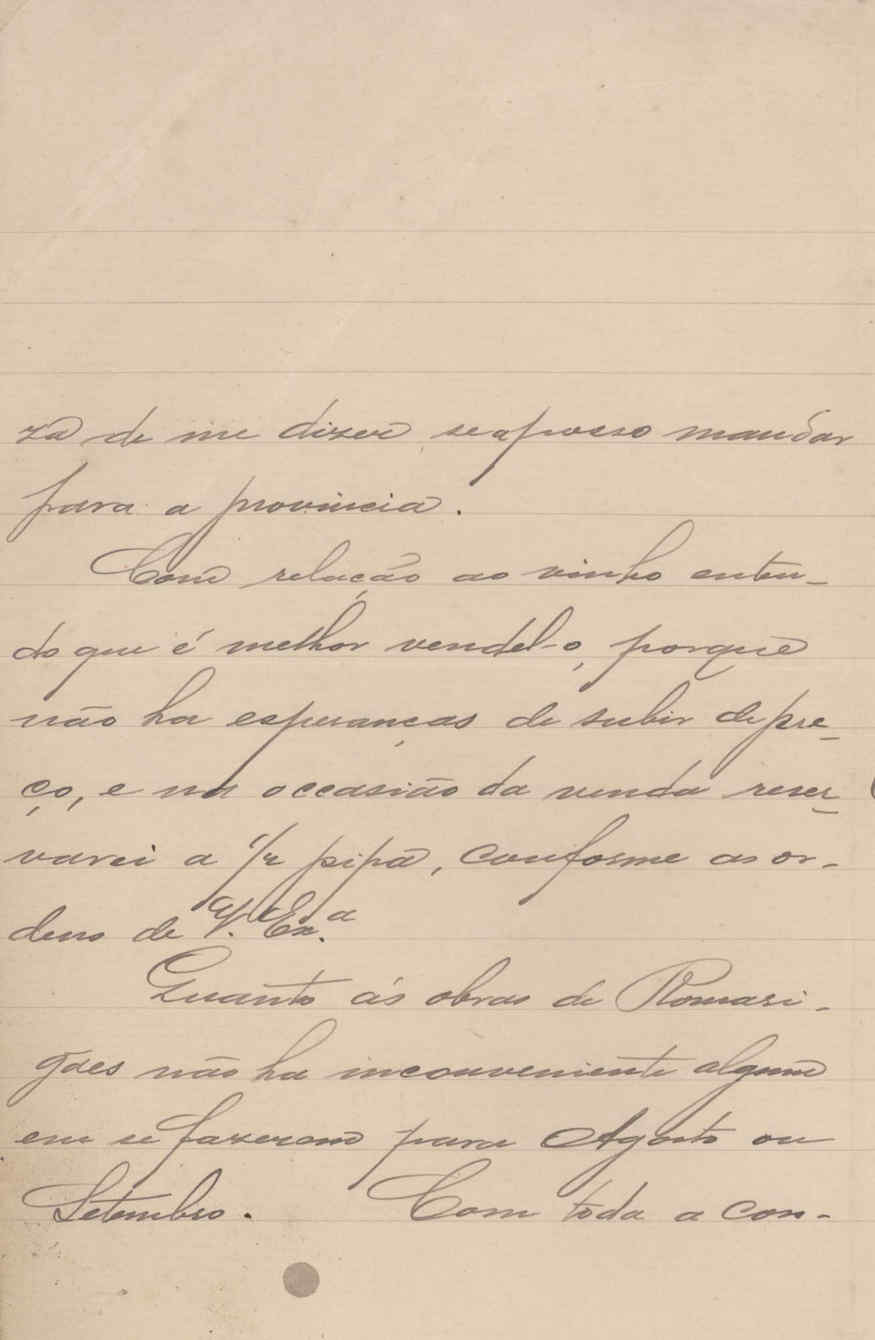 za de me dizer, se a posso mandar
para a provincia.
Com relação ao vinho enten-
do que é melhor vendel-o, porque
não ha esperanças de subir de pre-
ço, e na occasião da venda reser-
varei a 1/2 pipa, conforme as or-
dens de V. Ex.a
Quanto ás obras de Romari-
gães não ha inconveniente algum
em se fazerem para Agosto ou
Setembro. Com toda a con-